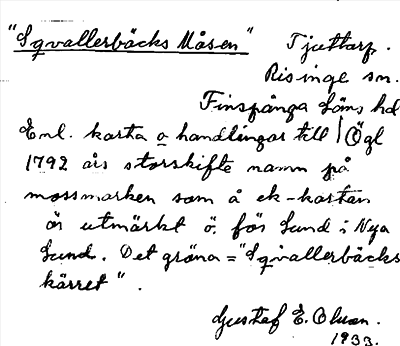 "Sqvallerbäcks Måsen" Tjuttorp.
Risinge sn.
Finspånga läns hd
Enl. karta o handlingar till Ögl
1792 års storskifte namn på
mossmarken som å ek-kartan
är utmärkt ö. för Lund i Nya
Lund. Det gröna = "Sqvallerbäcks
kärret".
Gustaf E.
1933.